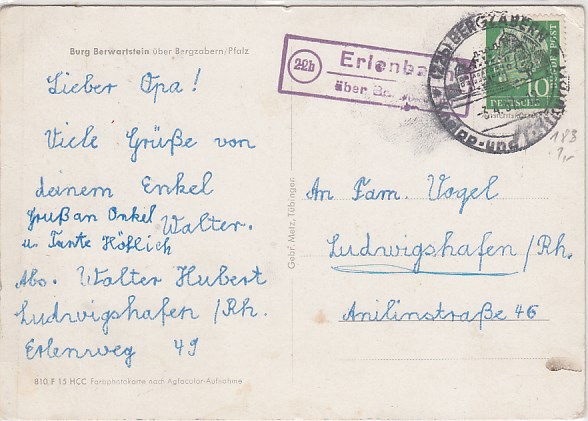 Burg Berwartstein über Bergzabern/Pfalz
Lieber Opa!
Viele Grüße von
deinem Enkel
Walter.
Gruß an Onkel
u. Tante Höflich
Abs. Walter Hubert
Ludwigshafen/Rh.
Erlenweg 49
810 F 15 HCC Farbphotokarte nach Agfacolor-Aufnahme
Gebr. Metz, Tübingen
22b
über
(22b) BERGZABERN
10
DEUTSCHE
An Fam. Vogel
Ludwigshafen/Rh.
Anilinstraße 46